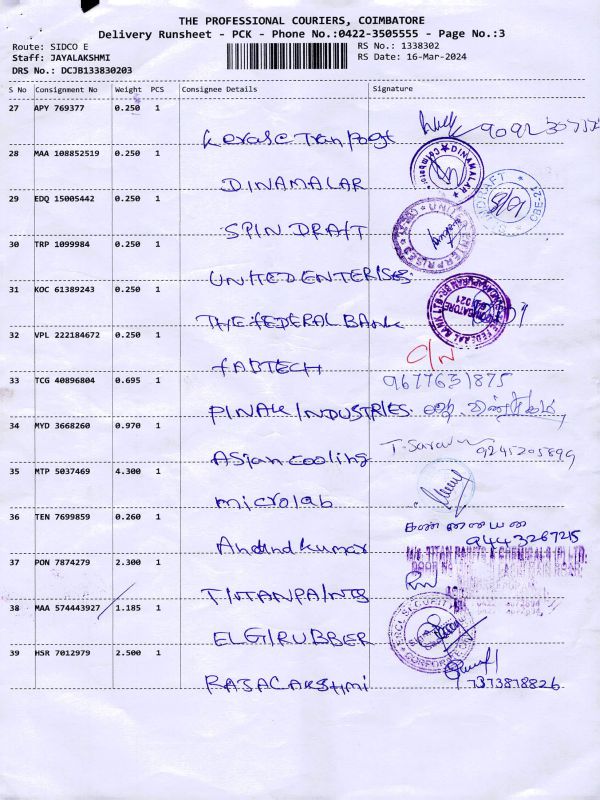 THE PROFESSIONAL COURIERS, COIMBATORE
Delivery Runsheet - PCK - Phone No.:0422-3505555 - Page No.:3
Route: SIDCO E
RS No.: 1338302
Staff: JAYALAKSHMI
RS Date: 16-Mar-2024
DRS No.: DCJB133830203
S No Consignment No Weight PCS Consignee Details Signature
27 APY 769377 0.250 1
Kerala Tranpogt
28 MAA 108852519 0.250 1
DINAMALAR
DINAMALAR
29 EDQ 15005442 0.250 1
SPIN DRAFT
30 TRP 1099984 0.250 1
UNITED ENTERISES
UNITED ENTERPRISES
31 KOC 61389243 0.250 1
THE FEDERAL BANK
32 VPL 222184672 0.250 1
FABTECH
33 TCG 40896804 0.695 1
9677631875
PINAK INDUSTRIES
34 MYD 3668260 0.970 1
Asian cooling
9245205899
35 MTP 5037469 4.300 1
microlab
36 TEN 7699859 0.260 1
Anand kumar
9443267215
37 PON 7874279 2.300 1
TITANPAINTS
38 MAA 574443927 1.185 1
ELGI RUBBER
39 HSR 7012979 2.500 1
RAJALAKSHMI
7373878826